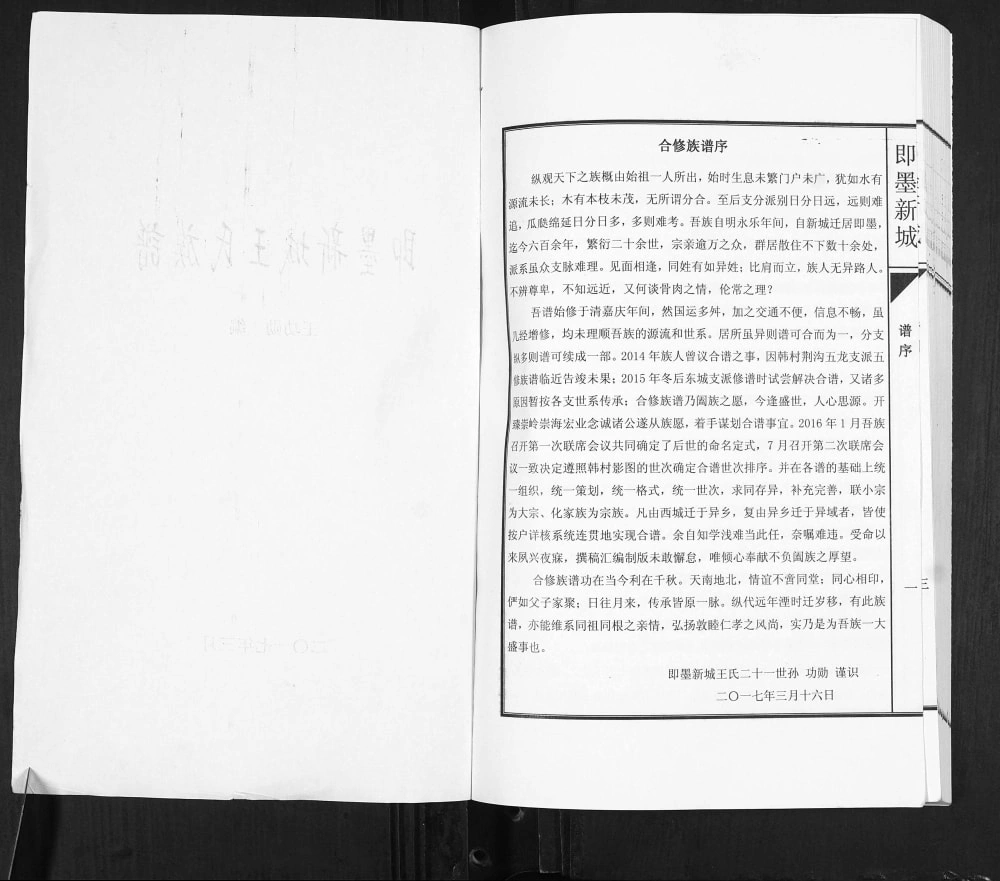 合修族谱序
纵观天下之族概由始祖一人所出，始时生息未繁门户未广，犹如水有
源流未长；木有本枝未茂，无所谓分合。至后支分派别日分日远，远则难
追，瓜瓞绵延日分日多，多则难考。吾族自明永乐年间，自新城迁居即墨，
迄今六百余年，繁衍二十余世，宗亲逾万之众，群居散住不下数十余处，
派系虽众支脉难理。见面相逢，同姓有如异姓；比肩而立，族人无异路人。
不辨尊卑，不知远近，又何谈骨肉之情，伦常之理？
吾谱始修于清嘉庆年间，然国运多舛，加之交通不便，信息不畅，虽
几经增修，均未理顺吾族的源流和世系。居所虽异则谱可合而为一，分支
纵多则谱可续成一部。2014 年族人曾议合谱之事，因韩村荆沟五龙支派五
修族谱临近告竣未果；2015 年冬后东城支派修谱时试尝解决合谱，又诸多
原因暂按各支世系传承；合修族谱乃阖族之愿，今逢盛世，人心思源。开
臻崇岭崇海宏业念诚诸公遂从族愿，着手谋划合谱事宜。2016 年 1 月吾族
召开第一次联席会议共同确定了后世的命名定式，7 月召开第二次联席会
议一致决定遵照韩村影图的世次确定合谱世次排序。并在各谱的基础上统
一组织，统一策划，统一格式，统一世次，求同存异，补充完善，联小宗
为大宗、化家族为宗族。凡由西城迁于异乡，复由异乡迁于异域者，皆使
按户详核系统连贯地实现合谱。余自知学浅难当此任，奈嘱难违。受命以
来夙兴夜寐，撰稿汇编制版未敢懈怠，唯倾心奉献不负阖族之厚望。
合修族谱功在当今利在千秋。天南地北，情谊不啻同堂；同心相印，
俨如父子家聚；日往月来，传承皆原一脉。纵代远年湮时迁岁移，有此族
谱，亦能维系同祖同根之亲情，弘扬敦睦仁孝之风尚，实乃是为吾族一大
盛事也。
即墨新城王氏二十一世孙 功勋 谨识
二〇一七年三月十六日
即墨新城
谱序
一
三
即墨新城王氏族谱
王功勋 编
二〇一七年三月